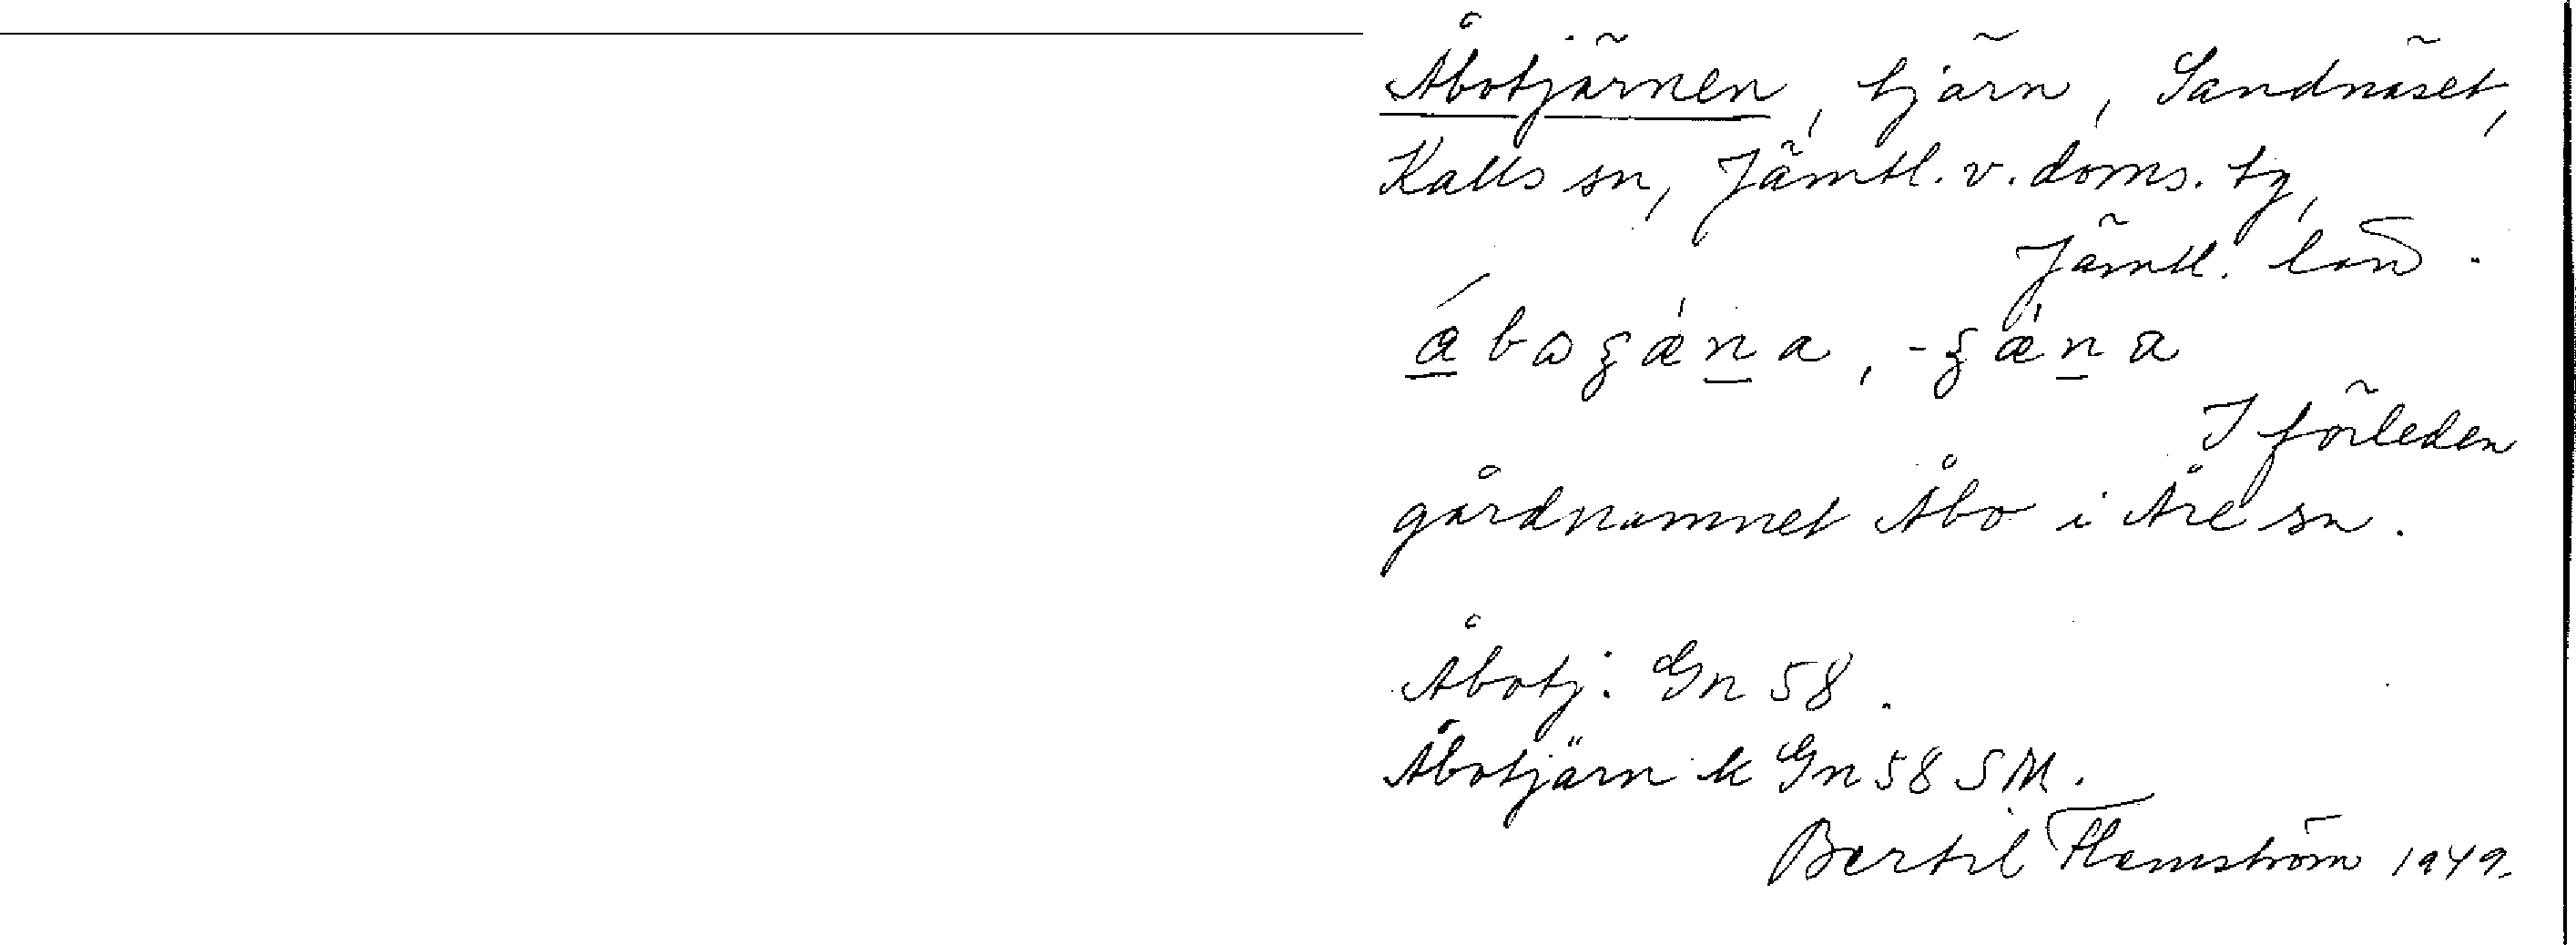 Åbotjärnen, tjärn, Sandnäset,
Kalls sn, Jämtl. v. doms. tg,
Jämtl. län.
I förleden
gårdnamnet Åbo i Åre sn.
Åbotj. Gn 58.
Åbotjärn k Gn 58 SM.
Bertil Flemström 1949.